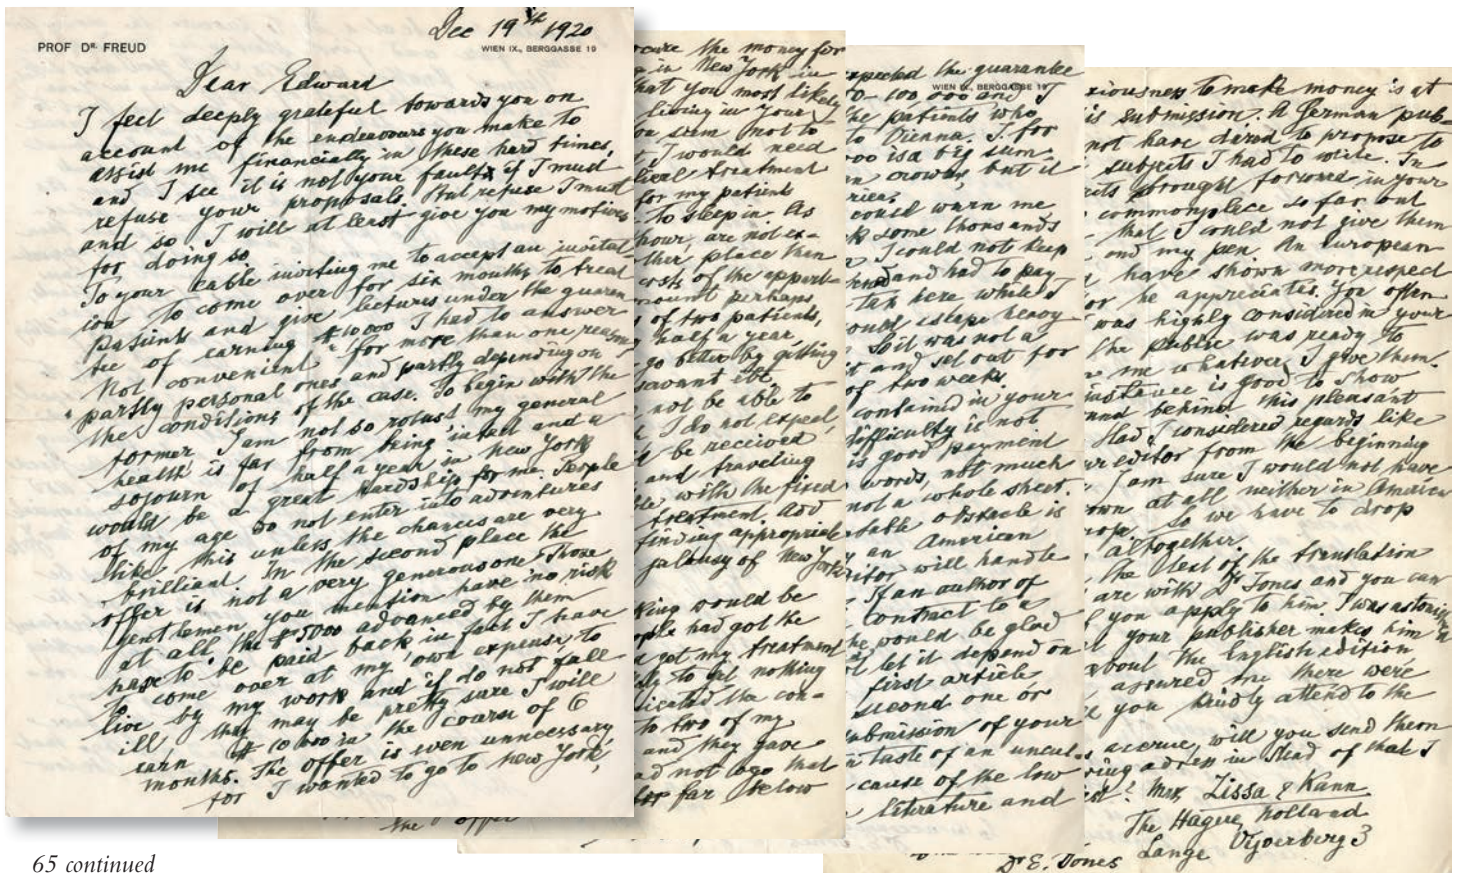 Dec 19th 1920
PROF DR. FREUD
WIEN IX., BERGGASSE 19
Dear Edward
I feel deeply grateful towards you on
account of the endeavours you make to
assist me financially in these hard times,
and I see it is not your fault if I must
refuse your proposals. But refuse I must
and so I will at least give you my motives
for doing so.
To your cable inviting me to accept an invitat-
ion to come over for six months to treat
patients and give lectures under the guaran
tee of earning $10000 I had to answer
Not convenient for more than one reason
partly personal ones and partly depending on
the conditions of the case. To begin with the
former I am not so robust my general
health is far from being intact and a
sojourn of half a year in New York
would be a great hardship for me. People
of my age do not enter into adventures
like this unless the chances are very
brilliant. In the second place the
offer is not a very generous one. Those
gentlemen you mention have no risk
at all the $5000 advanced by them
have to be paid back in fact I have
to come over at my own expense, to
live by my work and if do not fall
ill they may be pretty sure I will
earn $10000 in the course of 6
months. The offer is even unnecessary,
for I wanted to go to New York,
the offer
cure the money for
in New York in
hat you most likely
living in your
seem not to
I would need
treatment
for my patients
to sleep in. As
hour, are not ex-
ther place than
of the appart-
mount perhaps
of two patients,
half a year
go better by getting
savant etc,
not be able to
I do not expect,
be received
and traveling
with the fixed
treatment add
finding appropriate
jalousy of New York
king would be
had got the
got my treatment
to get nothing
icated the con-
to two of my
and they gave
ad not logo that
far below
WIEN IX., BERGGASSE 19
xpected the guarantee
100 000 and I
he patients who
to Vienna. I. for
000 is a big sum
crowns, but it
could warn me
some thousands
I could not keep
and had to pay
tax here while I
ould escape heavy
So it was not a
and set out for
of two weeks.
contained in your
difficulty is not
is good payment
words, not much
not a whole sheet.
obstacle is
an American
itor will handle
If an author of
contract to a
he would be glad
let it depend on
first article
second one or
ubmission of your
taste of an uncul-
cause of the low
literature and
xiousness to make money is at
is submission. A German pub-
not have dared to propose to
subjects I had to write. In
brought forward in your
commonplace so far out
that I could not give them
and my pen. An European
have shown more respect
or he appreciates. You often
was highly considered in your
the public was ready to
me whatever I give them.
instance is good to show
behind this pleasant
Had I considered regards like
editor from the beginning
I am sure I would not have
own at all neither in America
rope. So we have to drop
altogether.
the text of the translation
are with Dr Jones and you can
you apply to him. I was astonish
your publisher makes him
about the English edition
assured me there were
you kindly attend to the
accrue, will you send them
ing adress in stead of that I
Mrs. Lissa & Kann
The Hague, Holland
Lange Vijverberg 3
Dr E. Jones
65 continued